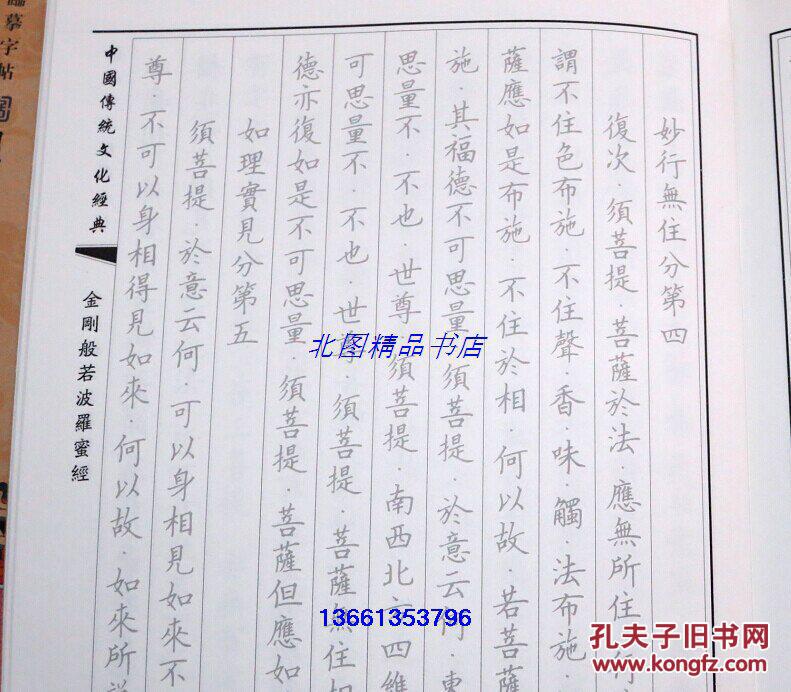 妙行無住分第四
復次·須菩提·菩薩於法·應無所住·行
謂不住色布施·不住聲·香·味·觸·法布施·
薩應如是布施·不住於相·何以故·若菩薩
施·其福德不可思量·須菩提·於意云何·東
思量不·不也·世尊·須菩提·南西北方四維
可思量不·不也·世尊·須菩提·菩薩無住相
德亦復如是不可思量·須菩提·菩薩但應如
如理實見分第五
須菩提·於意云何·可以身相見如來不
尊·不可以身相得見如來·何以故·如來所說
中國傳統文化經典
金剛般若波羅蜜經
臨摹字帖
北图精品书店
13661353796
孔夫子旧书网
www.kongfz.com